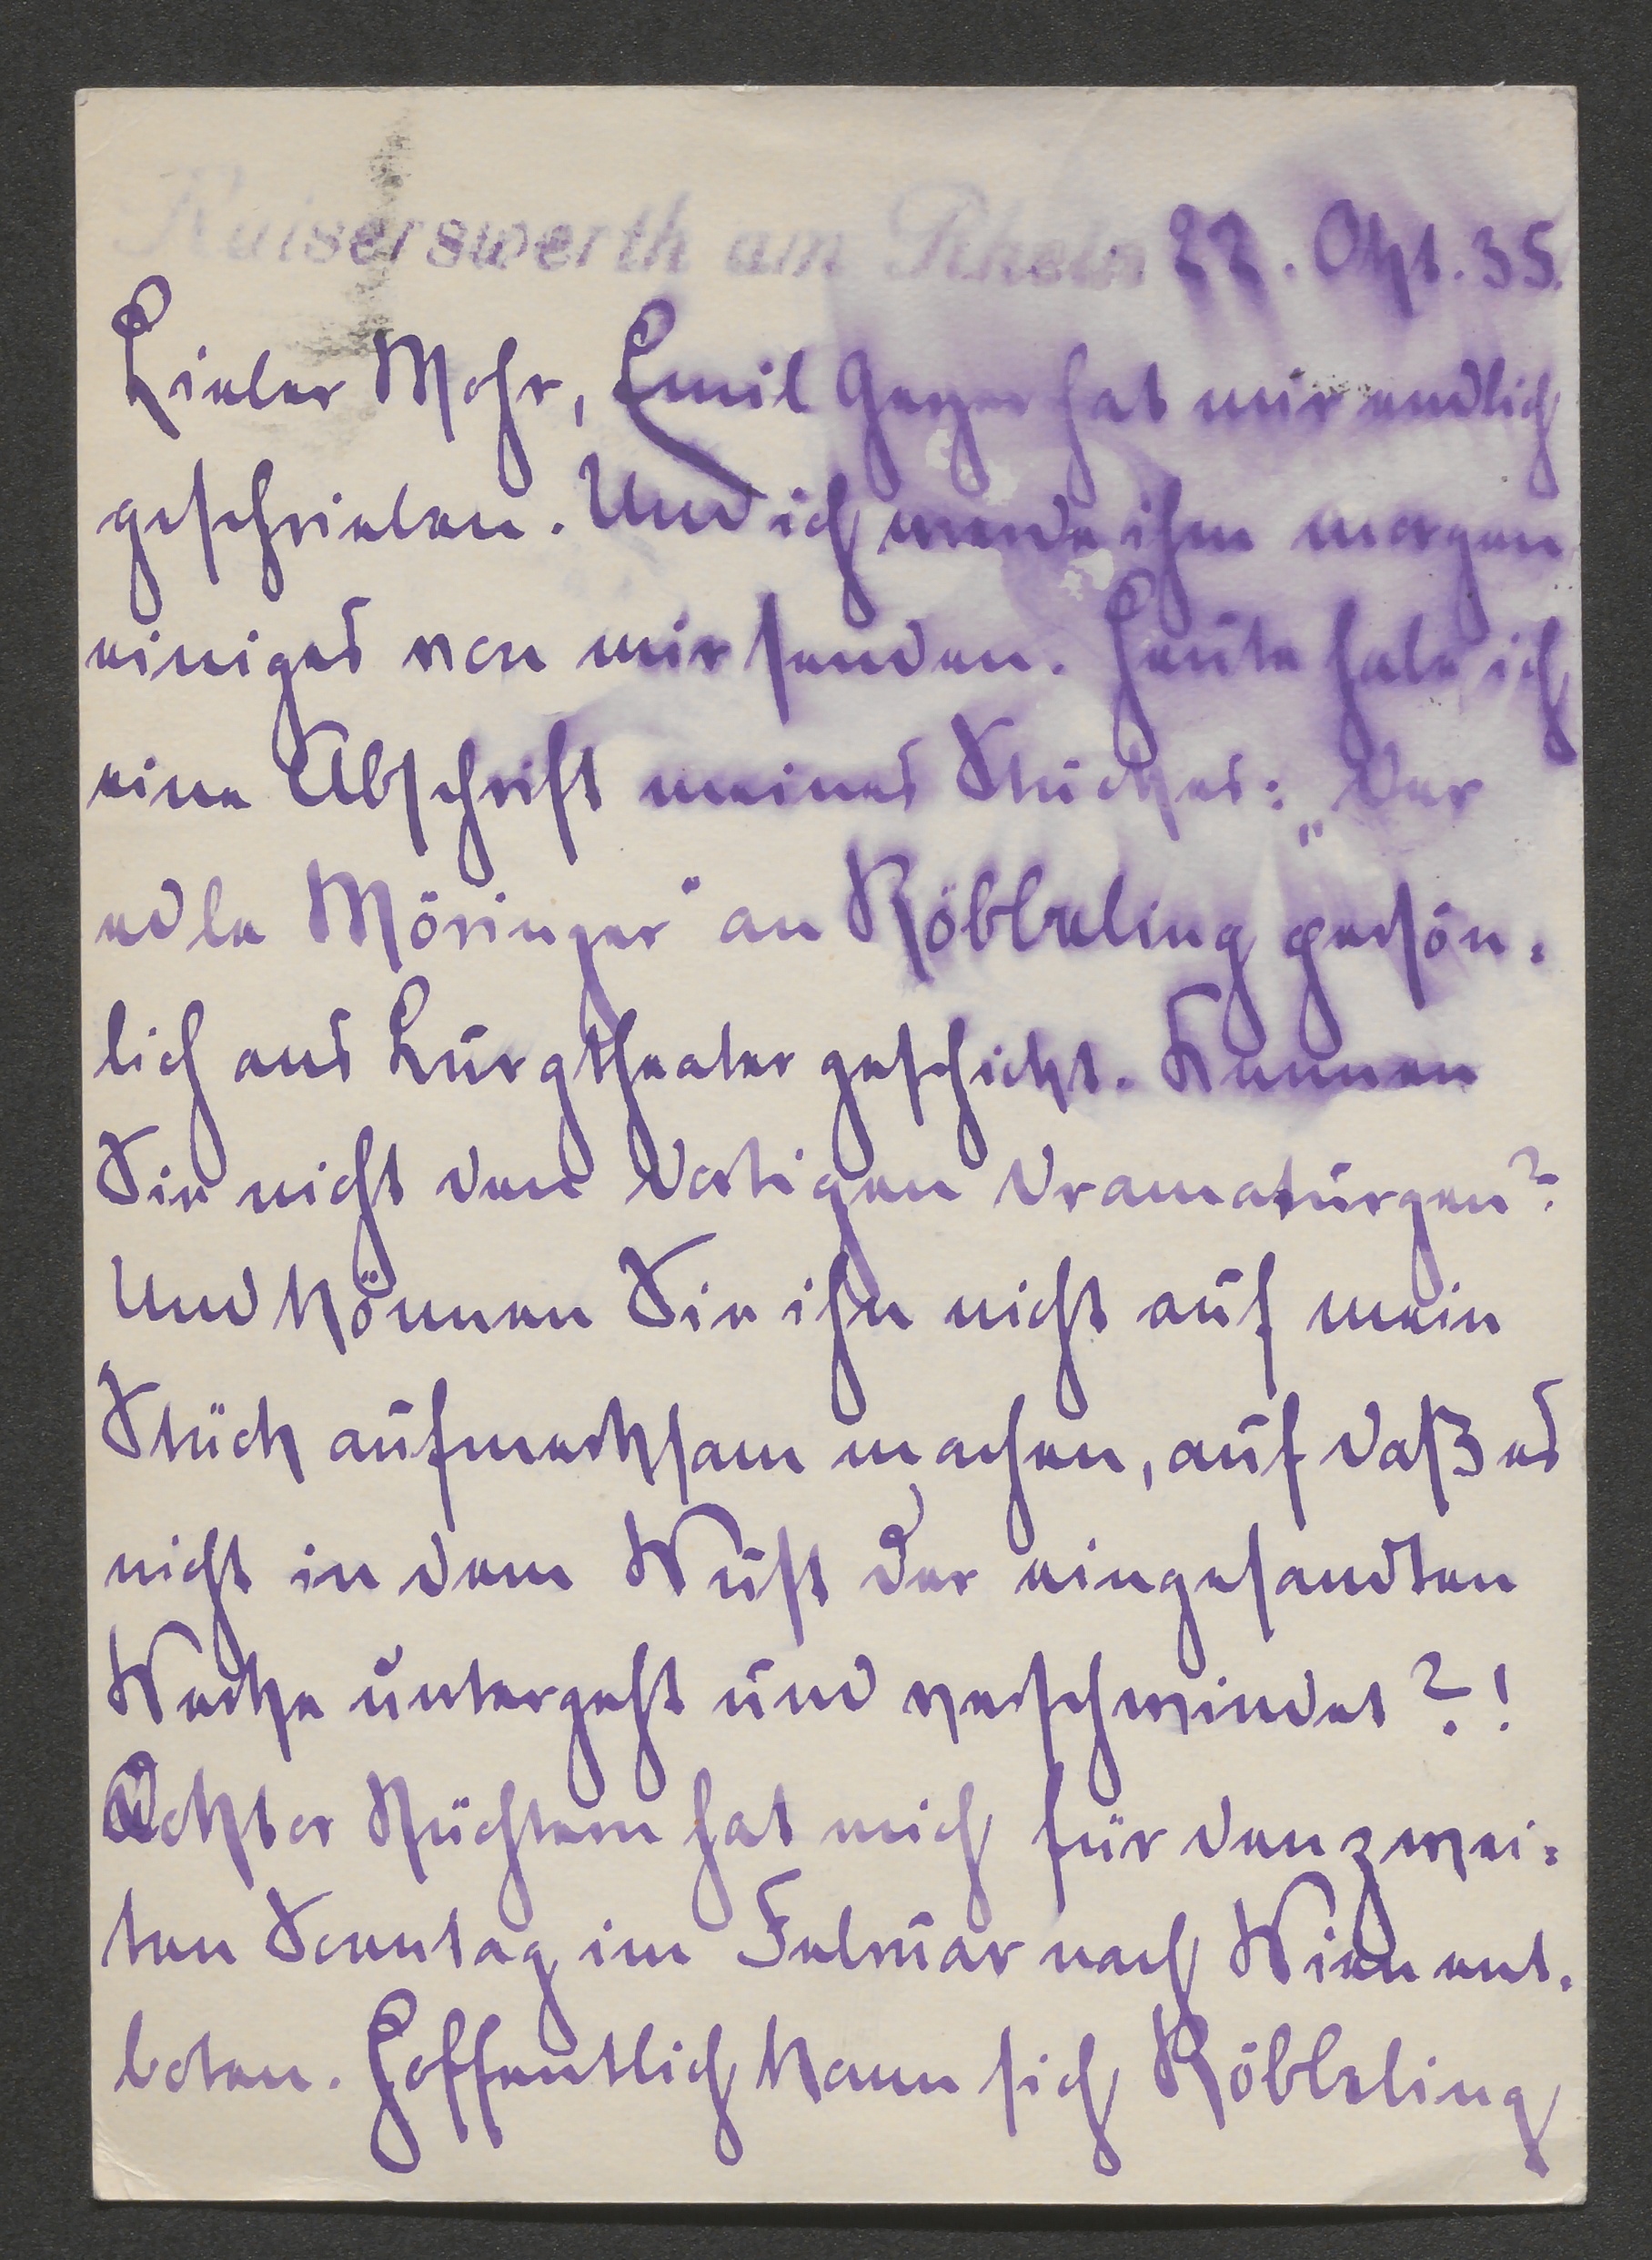 Kaiserswerth am Rhein 22. Okt. 35.
Lieber Mohr, Emil Geyer hat mir endlich
geschrieben. Und ich werde ihm morgen
einiges von mir senden. Heute habe ich
eine Abschrift meines Stückes: „Der
edle Möringer" an Röbbeling persön-
lich ans Burgtheater geschickt. Kennen
Sie nicht den dortigen Dramaturgen?
Und können Sie ihn nicht auf mein
Stück aufmerksam machen, auf daß es
nicht in dem Wust der eingesandten
Werke untergeht und verschwindet?!
hat mich für den zwei-
ten Sonntag im Februar nach Wien ent-
boten. Hoffentlich kann sich Röbbeling